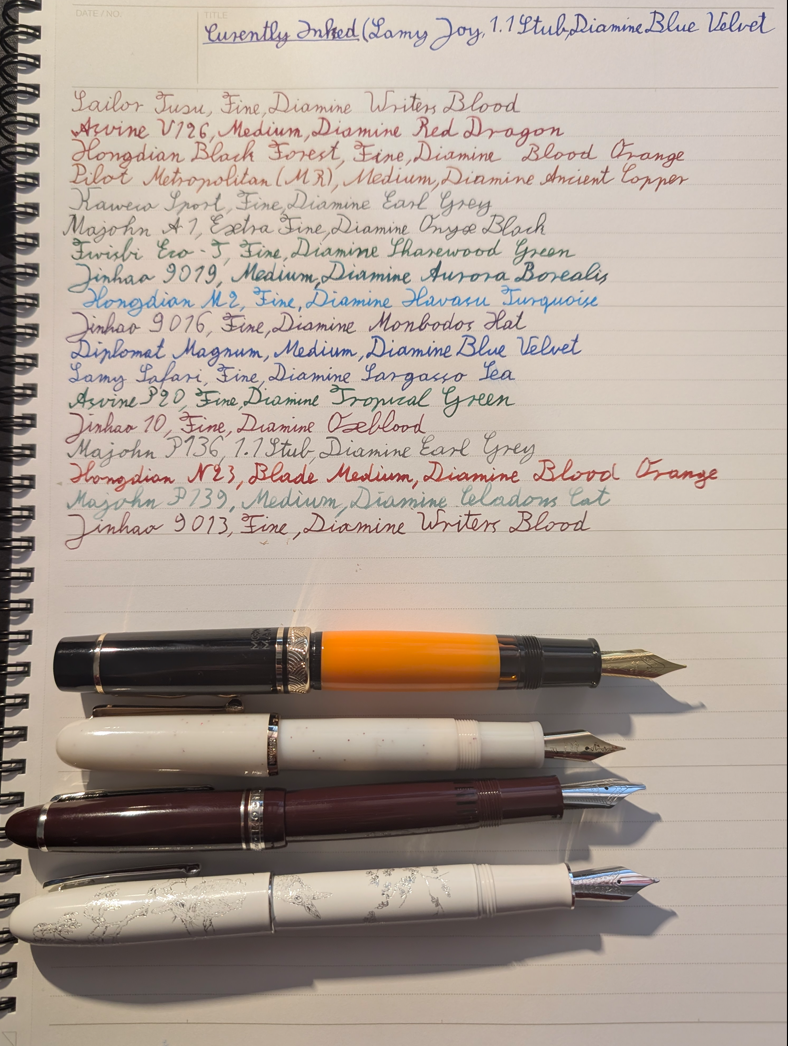 DATE / NO.
TITLE
Curently Inked (Lamy Joy, 1.1 Stub, Diamine Blue Velvet
Sailor Tusu, Fine, Diamine Writers Blood
Asvine V126, Medium, Diamine Red Dragon
Hongdian Black Forest, Fine, Diamine Blood Orange
Pilot Metropolitan (MR), Medium, Diamine Ancient Copper
Kaweco Sport, Fine, Diamine Earl Grey
Majohn A1, Extra Fine, Diamine Onyx Black
Twisbi Eco-T, Fine, Diamine Sharewood Green
Jinhao 9019, Medium, Diamine Aurora Borealis
Hongdian M2, Fine, Diamine Havasu Turquoise
Jinhao 9016, Fine, Diamine Monbodos Hat
Diplomat Magnum, Medium, Diamine Blue Velvet
Lamy Safari, Fine, Diamine Sargasso Sea
Asvine P20, Fine, Diamine Tropical Green
Jinhao 10, Fine, Diamine Oxblood
Majohn P136, 1.1 Stub, Diamine Earl Grey
Hongdian N23, Blade Medium, Diamine Blood Orange
Majohn P139, Medium, Diamine Celadons Cat
Jinhao 9013, Fine, Diamine Writers Blood